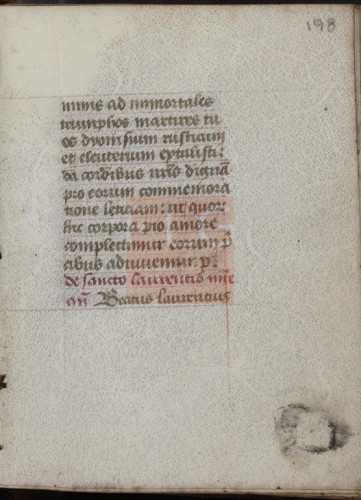 198
minis ad immortales
triumphos martires tu
os dyonisium rusticum
et eleuterium extulisti:
da cordibus nr̄is dignā
pro eorum commemora
tione leticiam: ut quor̄
hic corpora pio amore
complectimur eorum p
cibus adiuuemur. p.
de sancto laurentio
an̄ Beatus laurentius